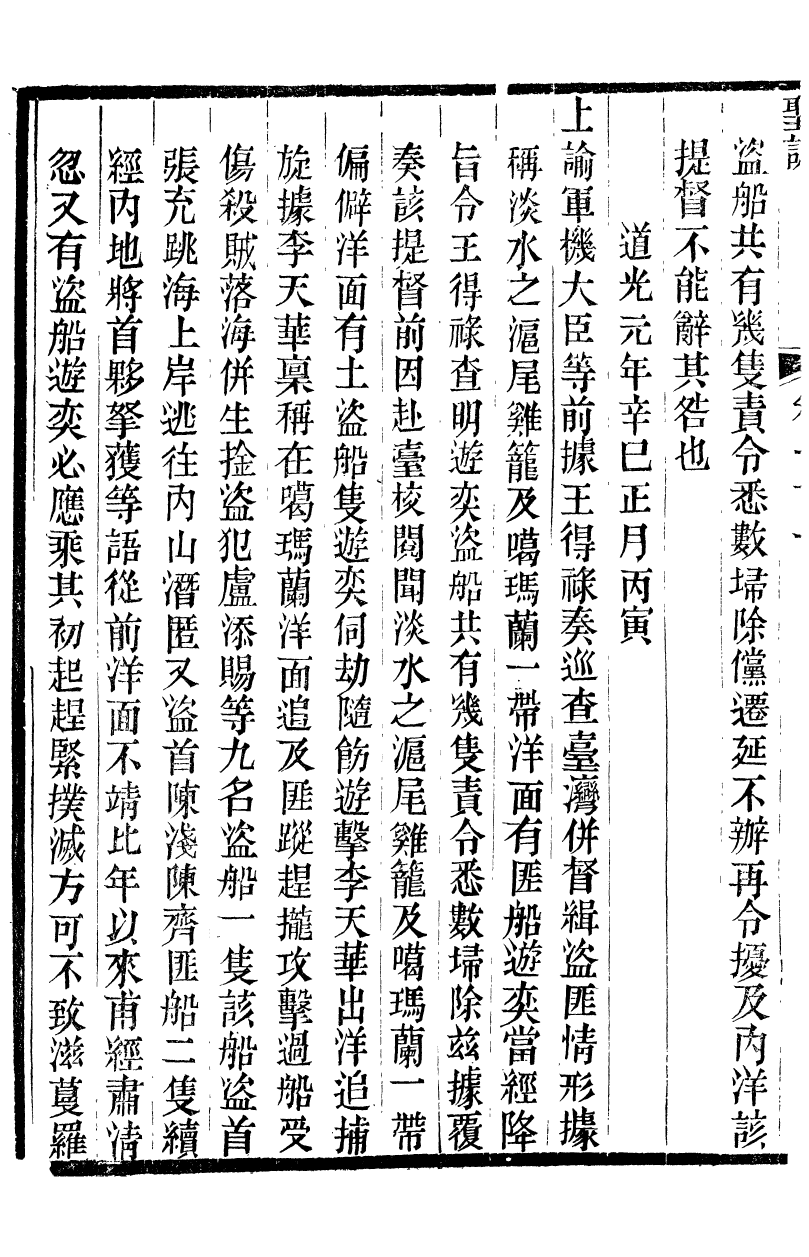 聖訓
盜船共有幾隻責令悉數埽除儻遷延不辦再令擾及內洋該
提督不能辭其咎也
道光元年辛巳正月丙寅
上諭軍機大臣等前據王得祿奏巡查臺灣併督緝盜匪情形據
稱淡水之滬尾雞籠及噶瑪蘭一帶洋面有匪船遊奕當經降
旨令王得祿查明遊奕盜船共有幾隻責令悉數埽除茲據覆
奏該提督前因赴臺校閱聞淡水之滬尾雞籠及噶瑪蘭一帶
偏僻洋面有土盜船隻遊奕伺劫隨飭遊擊李天華出洋追捕
旋據李天華稟稱在噶瑪蘭洋面追及匪蹤趕攏攻擊過船受
傷殺賊落海併生捦盜犯盧添賜等九名盜船一隻該船盜首
張充跳海上岸逃往內山潛匿又盜首陳淺陳齊匪船二隻續
經內地將首夥拏獲等語從前洋面不靖比年以來甫經肅清
忽又有盜船遊奕必應乘其初起趕緊撲滅方可不致滋蔓羅